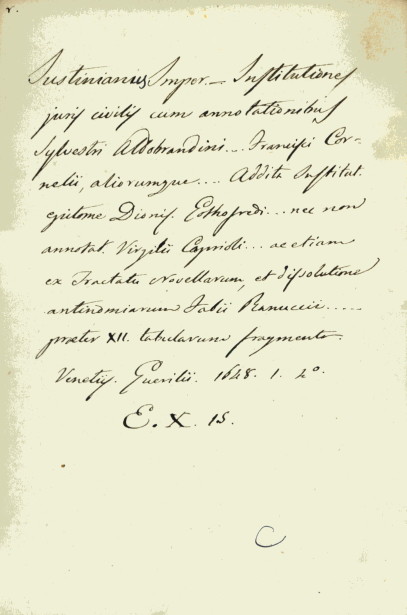 r.
Justinianus Imper. — Institutiones
juris civilis cum annotationibus
Sylvestri Aldobrandini... Francisci Cor-
nelii, aliorumque.... Addita Institut.
epitome Dionis. Gothofredi... nec non
annotat. Virgilii Caprioli... ac etiam
ex Tractatu Novellarum, et dissolutione
antinomiarum Fabii Ranuccii.....
præter XII. tabularum fragmenta.
Venetiis. Guerilii. 1648. 1. 4°.
E. X. 15.
C